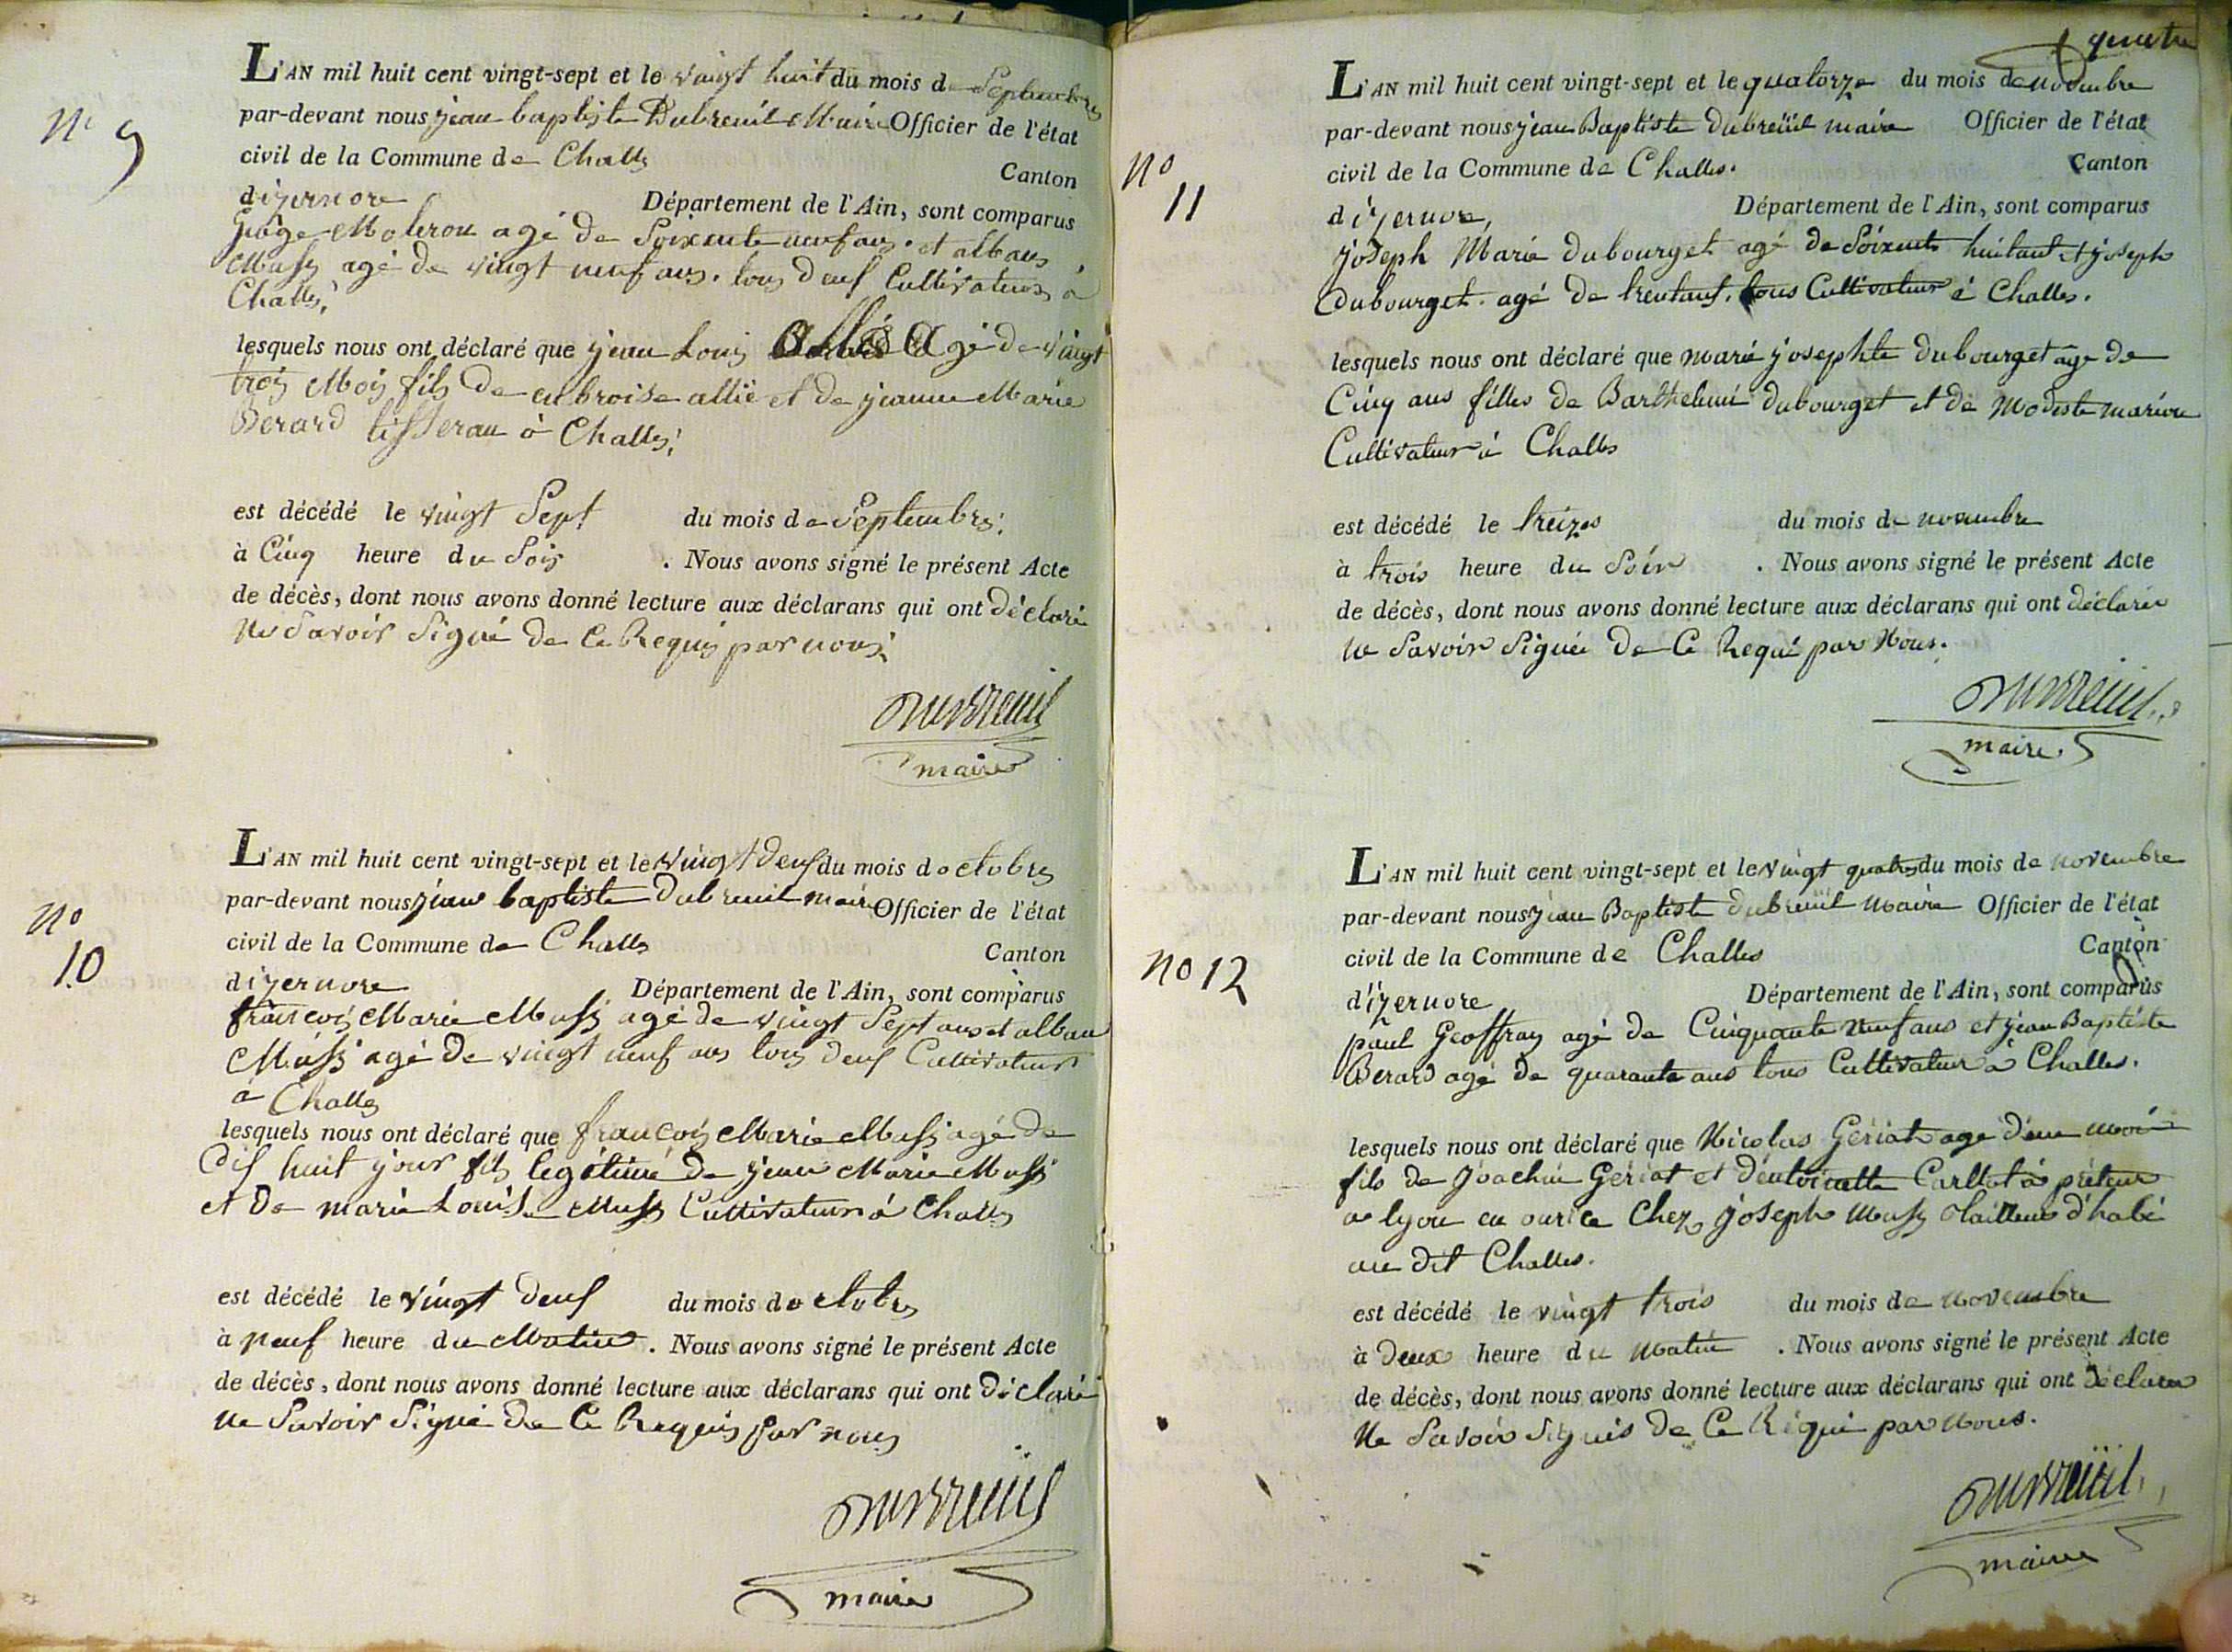 N° 9
L'AN mil huit cent vingt-sept et le vingt huit du mois de Septembre
par-devant nous jean baptiste Dubreuil Maire Officier de l'état
civil de la Commune de Challes
Canton
dizernore Département de l'Ain, sont comparus
agé de Soixente neuf ans. et alban
Massy agé de vingt neuf ans. tous deuf Cultivateurs à
Challes.
lesquels nous ont déclaré que jean Louis allié agé de vingt
trois Mois fils de anbroise allié et de jeanne Marie
Berard tisseran à Challes.
est décédé le vingt Sept du mois de Septembre.
à Cinq heure du Soir . Nous avons signé le présent Acte
de décès, dont nous avons donné lecture aux déclarans qui ont déclaré
Ne Savoir Signé de Ce Requis par nous.
Dubreuil
maire
N° 10
L'AN mil huit cent vingt-sept et le vingt deuf du mois doctobre
par-devant nous jean baptiste Dubreuil maire Officier de l'état
civil de la Commune de Challes
Canton
dizernore Département de l'Ain, sont comparus
francois Marie Massy agé de vingt Sept ans et alban
Massy agé de vingt neuf ans tous deuf Cultivateurs
à Challes
lesquels nous ont déclaré que francois Marie Massy agé de
dif huit jour fils legitime de jean Marie Massy
et De marie Louise Massy Cultivateurs à Challes
est décédé le vingt deuf du mois doctobre
à neuf heure du Matin . Nous avons signé le présent Acte
de décès, dont nous avons donné lecture aux déclarans qui ont déclaré
Ne Savoir Signé de Ce Requis par nous
Dubreüil
maire
quatre
N° 11
L'AN mil huit cent vingt-sept et le quatorze du mois de novembre
par-devant nous jean Baptiste dubreüil maire Officier de l'état
civil de la Commune de Challes.
Canton
dizernore, Département de l'Ain, sont comparus
joseph Marie dubourget agé de Soixente huitant et joseph
dubourget. agé de trentans. tous Cultivateur à Challes.
lesquels nous ont déclaré que marie josephte dubourget age de
Cinq ans filles de Barthelemi dubourget et de Modeste marion
Cultivateur à Challes
est décédé le treizes du mois de novembre
à trois heure du Soir . Nous avons signé le présent Acte
de décès, dont nous avons donné lecture aux déclarans qui ont déclaré
ne Savoir Signée De Ce Requi par Nous.
Dubreuil
maire
N° 12
L'AN mil huit cent vingt-sept et le vingt quatre du mois de novembre
par-devant nous jean Baptiste dubreüil Maire Officier de l'état
civil de la Commune de Challes
Canton
d'izernore Département de l'Ain, sont comparus
paul Geoffray agé de Cinquante neuf ans et jean Baptiste
Berard agé de quarante ans tous Cultivateur à Challes.
lesquels nous ont déclaré que Nicolas Geriat age d'un moi
fils de Joachin Geriat et
a lyon en ourice Chez joseph Massy tailleur d'habi
au dit Challes.
est décédé le vingt trois du mois de novembre
à deux heure du Matin . Nous avons signé le présent Acte
de décès, dont nous avons donné lecture aux déclarans qui ont déclaré
Ne Savoir Signé de Ce Requi par Nous.
Dubreüil
maire